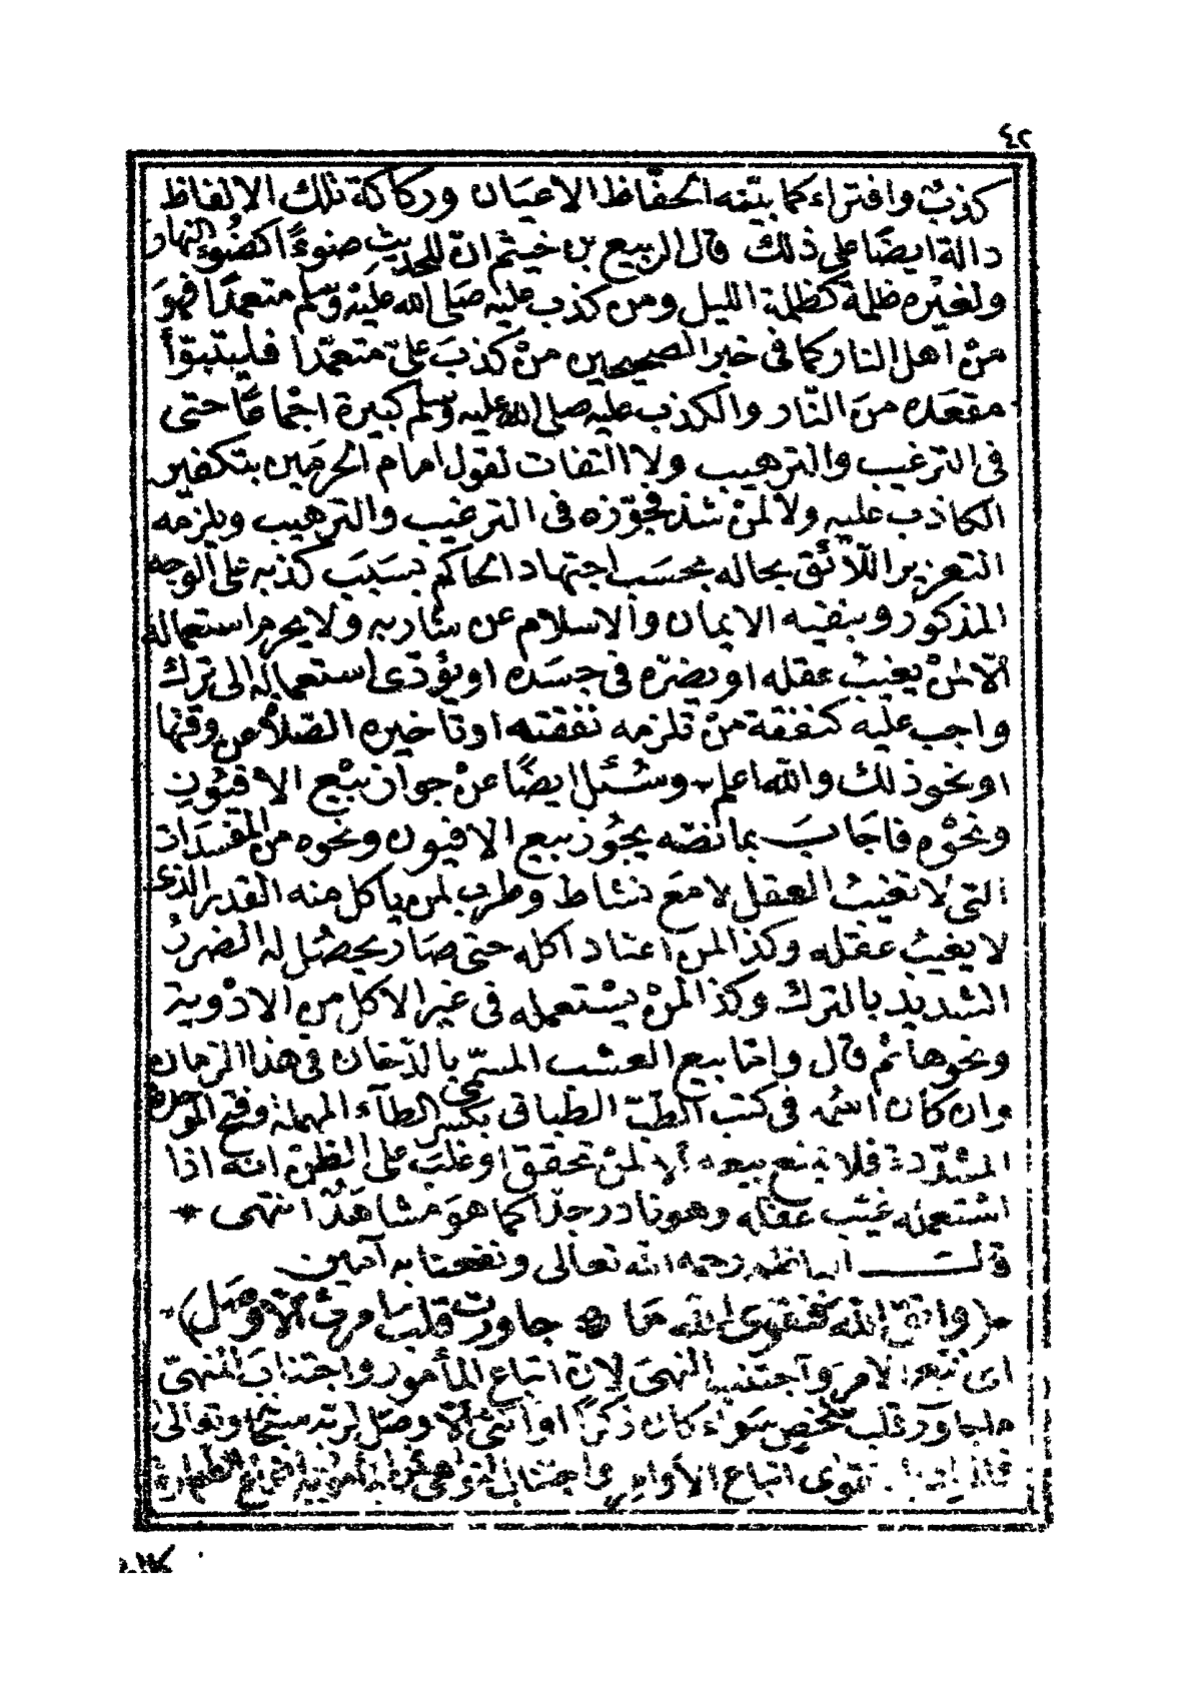 ٤٢
كذبٌ وافتراء كما بيّنه الحفّاظ الأعيَان وركاكة تلك الالفاظ
دالة ايضًا على ذلك قال الربيع بن خيثم ان للحديث ضوءًا كضوء النهار
ولغيره ظلمة كظلمة الليل ومن كذب عليه صَلى الله عليه وسلم متعمدًا فهوَ
مَنْ اهل النار كما فى خبر الصحيحين منْ كذبَ علىّ متعمّدا فليتبوّأ
مقعَده منَ النّار والكذب عليه صلى الله عليه وسلم كبيرة اجْماعًا حتى
فى الترغيب والترهيب ولا التفات لقول امام الحرمَين بتكفير
الكاذب عليه ولا لمنْ شذ فجوّزه فى الترغيب والترهيب ويلزمه
التعزير اللّائق بحاله بحسَب اجتهاد الحاكم بسَبَب كذبه على الوجه
المذكور وبنفيه الايمان والاسلام عن شاربه ولا يحرم استعماله
الّا لمنْ يغيبُ عقله او يضرّه فى جسَده او يؤدّى استعماله الى ترك
واجب عليه كنفقة منْ تلزمه نفقته او تأخيره الصّلاة عن وقتها
او نحو ذلك والله اعلم وسُئل ايضًا عنْ جواز بيْع الافيُون
ونحْوه فاجَابَ بما نصّه يجُوز بيع الافيون ونحوه من المفسدَات
التى لا تغيبُ العقل لا معَ نشاط وطرب لمن ياكل منه القدر الذى
لا يغيبُ عقله وكذا لمن اعتاد اكله حتى صَار يحصُل له الضررُ
الشديد بالترك وكذا لمنْ يسْتعمله فى غير الاكل من الادْوية
ونحوها ثم قال وامّا بيع العشب المسمّى بالدّخان فى هذا الزمان
وان كان اسمه فى كتب الطبّ الطباقى بكسر الطآء المهملة وفتح الموحدة
المشدّدة فلا يمنع بيعه الا لمنْ تحقق او غلبَ على الظنّ انه اذا
اسْتعمله غيّب عقله وهو نادر جدّا كما هوَ مشاهَدٌ انتهى *
قالـــــ الناظم رحمه الله تعالى ونفعنا به آمين
(واتق الله فتقوى الله مَا ۞ جاورت قلب امرئ الّا وصَل)
اى اتبع الامرَ واجتنب النهىَ لانّ اتباع المأمور واجتنابَ المنهىّ
ما جاورَ قلب شخص سَواء كان ذكرًا او انثى الّا وصَل لربه سبحانه وتعالى
تقوى اتباع الأوامر واجتناب النواهى